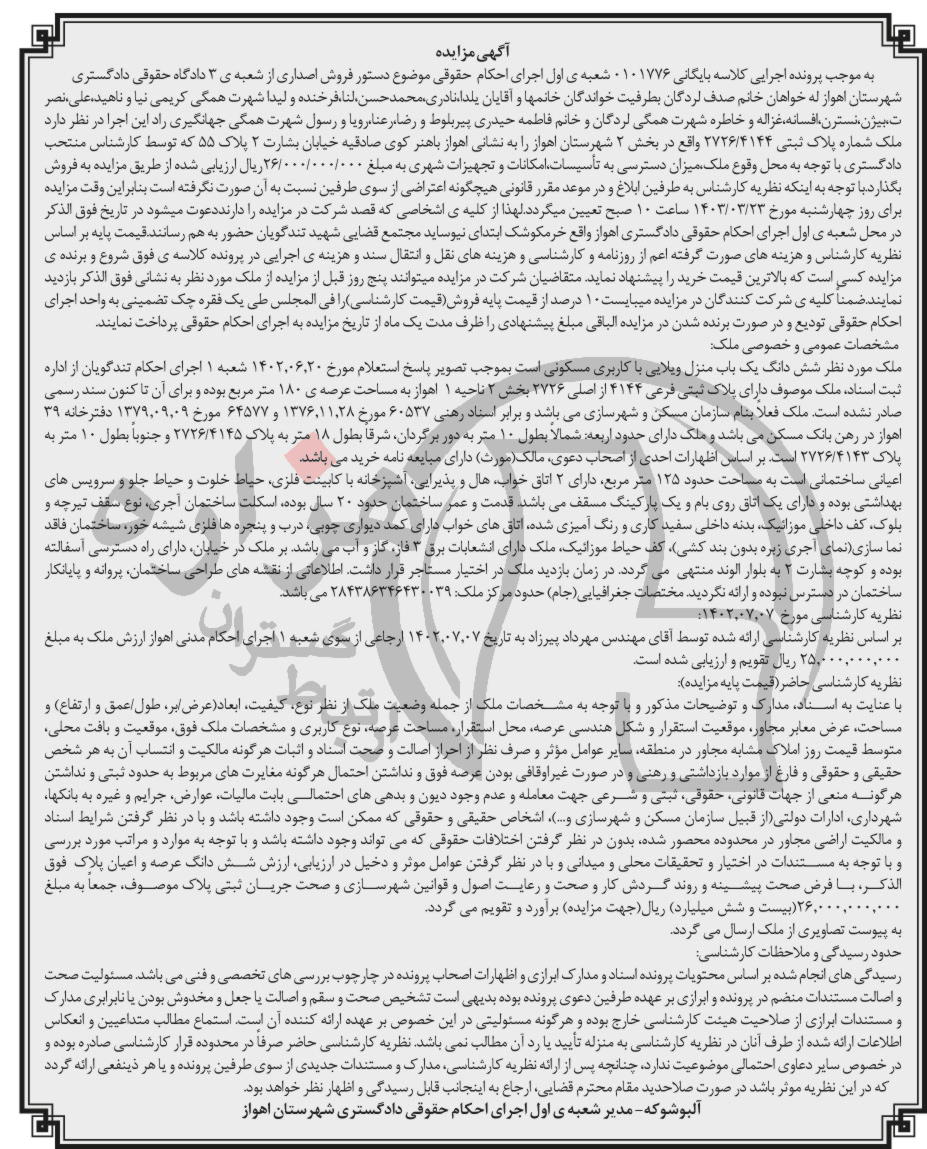 آگهی مزایده
به موجب پرونده اجرایی کلاسه بایگانی ۰۱۰۱۷۷۶ شعبه ی اول اجرای احکام حقوقی موضوع دستور فروش اصداری از شعبه ی ۳ دادگاه حقوقی دادگستری
شهرستان اهواز له خواهان خانم صدف لردگان بطرفیت خواندگان خانمها و آقایان یلدا،نادری،محمدحسن،لنا،فرخنده و لیدا شهرت همگی کریمی نیا و ناهید،علی،نصر
ت،بیژن،نسترن،افسانه،غزاله و خاطره شهرت همگی لردگان و خانم فاطمه حیدری پیربلوط و رضا،رعنا،رویا و رسول شهرت همگی جهانگیری راد این اجرا در نظر دارد
ملک شماره پلاک ثبتی ۲۷۲۶/۴۱۴۴ واقع در بخش ۲ شهرستان اهواز را به نشانی اهواز باهنر کوی صادقیه خیابان بشارت ۲ پلاک ۵۵ که توسط کارشناس منتخب
دادگستری با توجه به محل وقوع ملک،میزان دسترسی به تأسیسات،امکانات و تجهیزات شهری به مبلغ ۲۶/۰۰۰/۰۰۰/۰۰۰ریال ارزیابی شده از طریق مزایده به فروش
بگذارد.با توجه به اینکه نظریه کارشناس به طرفین ابلاغ و در موعد مقرر قانونی هیچگونه اعتراضی از سوی طرفین نسبت به آن صورت نگرفته است بنابراین وقت مزایده
برای روز چهارشنبه مورخ ۱۴۰۳/۰۳/۲۳ ساعت ۱۰ صبح تعیین میگردد.لهذا از کلیه ی اشخاصی که قصد شرکت در مزایده را دارنددعوت میشود در تاریخ فوق الذکر
در محل شعبه ی اول اجرای احکام حقوقی دادگستری اهواز واقع خرمکوشک ابتدای نیوساید مجتمع قضایی شهید تندگویان حضور به هم رسانند.قیمت پایه بر اساس
نظریه کارشناس و هزینه های صورت گرفته اعم از روزنامه و کارشناسی و هزینه های نقل و انتقال سند و هزینه ی اجرایی در پرونده کلاسه ی فوق شروع و برنده ی
مزایده کسی است که بالاترین قیمت خرید را پیشنهاد نماید. متقاضیان شرکت در مزایده میتوانند پنج روز قبل از مزایده از ملک مورد نظر به نشانی فوق الذکر بازدید
نمایند.ضمناً کلیه ی شرکت کنندگان در مزایده میبایست۱۰ درصد از قیمت پایه فروش(قیمت کارشناسی)را فی المجلس طی یک فقره چک تضمینی به واحد اجرای
احکام حقوقی تودیع و در صورت برنده شدن در مزایده الباقی مبلغ پیشنهادی را ظرف مدت یک ماه از تاریخ مزایده به اجرای احکام حقوقی پرداخت نمایند.
مشخصات عمومی و خصوصی ملک:
ملک مورد نظر شش دانگ یک باب منزل ویلایی با کاربری مسکونی است بموجب تصویر پاسخ استعلام مورخ ۱۴۰۲,۰۶,۲۰ شعبه ۱ اجرای احکام تندگویان از اداره
ثبت اسناد، ملک موصوف دارای پلاک ثبتی فرعی ۴۱۴۴ از اصلی ۲۷۲۶ بخش ۲ ناحیه ۱ اهواز به مساحت عرصه ی ۱۸۰ متر مربع بوده و برای آن تا کنون سند رسمی
صادر نشده است. ملک فعلاً بنام سازمان مسکن و شهرسازی می باشد و برابر اسناد رهنی ۶۰۵۳۷ مورخ ۱۳۷۶,۱۱,۲۸ و ۶۴۵۷۷ مورخ ۱۳۷۹,۰۹,۰۹ دفترخانه ۳۹
اهواز در رهن بانک مسکن می باشد و ملک دارای حدود اربعه: شمالاً بطول ۱۰ متر به دور برگردان، شرقاً بطول ۱۸ متر به پلاک ۲۷۲۶/۴۱۴۵ و جنوباً بطول ۱۰ متر به
پلاک ۲۷۲۶/۴۱۴۳ است. بر اساس اظهارات احدی از اصحاب دعوی، مالک(مورث) دارای مبایعه نامه خرید می باشد.
اعیانی ساختمانی است به مساحت حدود ۱۲۵ متر مربع، دارای ۲ اتاق خواب، هال و پذیرایی، آشپزخانه با کابینت فلزی، حیاط خلوت و حیاط جلو و سرویس های
بهداشتی بوده و دارای یک اتاق روی بام و یک پارکینگ مسقف می باشد. قدمت و عمر ساختمان حدود ۲۰ سال بوده، اسکلت ساختمان آجری، نوع سقف تیرچه و
بلوک، کف داخلی موزائیک، بدنه داخلی سفید کاری و رنگ آمیزی شده، اتاق های خواب دارای کمد دیواری چوبی، درب و پنجره ها فلزی شیشه خور، ساختمان فاقد
نما سازی(نمای آجری زبره بدون بند کشی)، کف حیاط موزائیک، ملک دارای انشعابات برق ۳ فاز، گاز و آب می باشد. بر ملک در خیابان، دارای راه دسترسی آسفالته
بوده و کوچه بشارت ۲ به بلوار الوند منتهی می گردد. در زمان بازدید ملک در اختیار مستأجر قرار داشت. اطلاعاتی از نقشه های طراحی ساختمان، پروانه و پایانکار
ساختمان در دسترس نبوده و ارائه نگردید. مختصات جغرافیایی(جام) حدود مرکز ملک: ۲۸۴۳۸۶۳۴۶۴۳۰۰۳۹ می باشد.
نظریه کارشناسی مورخ ۱۴۰۲,۰۷,۰۷:
بر اساس نظریه کارشناسی ارائه شده توسط آقای مهندس مهرداد پیرزاد به تاریخ ۱۴۰۲,۰۷,۰۷ ارجاعی از سوی شعبه ۱ اجرای احکام مدنی اهواز ارزش ملک به مبلغ
۲۵,۰۰۰,۰۰۰,۰۰۰ ریال تقویم و ارزیابی شده است.
نظریه کارشناسی حاضر(قیمت پایه مزایده):
با عنایت به اسناد، مدارک و توضیحات مذکور و با توجه به مشخصات ملک از جمله وضعیت ملک از نظر نوع، کیفیت، ابعاد(عرض/بر، طول/عمق و ارتفاع) و
مساحت، عرض معابر مجاور، موقعیت استقرار و شکل هندسی عرصه، محل استقرار، مساحت عرصه، نوع کاربری و مشخصات ملک فوق، موقعیت و بافت محلی،
متوسط قیمت روز املاک مشابه مجاور در منطقه، سایر عوامل مؤثر و صرف نظر از احراز اصالت و صحت اسناد و اثبات هرگونه مالکیت و انتساب آن به هر شخص
حقیقی و حقوقی و فارغ از موارد بازداشتی و رهنی و در صورت غیراوقافی بودن عرصه فوق و نداشتن احتمال هرگونه مغایرت های مربوط به حدود ثبتی و نداشتن
هرگونه منعی از جهات قانونی، حقوقی، ثبتی و شرعی جهت معامله و عدم وجود دیون و بدهی های احتمالی بابت مالیات، عوارض، جرایم و غیره به بانکها،
شهرداری، ادارات دولتی(از قبیل سازمان مسکن و شهرسازی و...)، اشخاص حقیقی و حقوقی که ممکن است وجود داشته باشد و با در نظر گرفتن شرایط اسناد
و مالکیت اراضی مجاور در محدوده محصور شده، بدون در نظر گرفتن اختلافات حقوقی که می تواند وجود داشته باشد و با توجه به موارد و مراتب مورد بررسی
و با توجه به مستندات در اختیار و تحقیقات محلی و میدانی و با در نظر گرفتن عوامل موثر و دخیل در ارزیابی، ارزش شش دانگ عرصه و اعیان پلاک فوق
الذکر، با فرض صحت پیشینه و روند گردش کار و صحت و رعایت اصول و قوانین شهرسازی و صحت جریان ثبتی پلاک موصوف، جمعاً به مبلغ
۲۶,۰۰۰,۰۰۰,۰۰۰(بیست و شش میلیارد) ریال(جهت مزایده) برآورد و تقویم می گردد.
به پیوست تصاویری از ملک ارسال می گردد.
حدود رسیدگی و ملاحظات کارشناسی:
رسیدگی های انجام شده بر اساس محتویات پرونده اسناد و مدارک ابرازی و اظهارات اصحاب پرونده در چارچوب بررسی های تخصصی و فنی می باشد. مسئولیت صحت
و اصالت مستندات منضم در پرونده و ابرازی بر عهده طرفین دعوی پرونده بوده بدیهی است تشخیص صحت و سقم و اصالت یا جعل و مخدوش بودن یا نابرابری مدارک
و مستندات ابرازی از صلاحیت هیئت کارشناسی خارج بوده و هرگونه مسئولیتی در این خصوص بر عهده ارائه کننده آن است. استماع مطالب متداعیین و انعکاس
اطلاعات ارائه شده از طرف آنان در نظریه کارشناسی به منزله تأیید یا رد آن مطالب نمی باشد. نظریه کارشناسی حاضر صرفاً در محدوده قرار کارشناسی صادره بوده و
در خصوص سایر دعاوی احتمالی موضوعیت ندارد، چنانچه پس از ارائه نظریه کارشناسی، مدارک و مستندات جدیدی از سوی طرفین پرونده و یا هر ذینفعی ارائه گردد
که در این نظریه موثر باشد در صورت صلاحدید مقام محترم قضایی، ارجاع به اینجانب قابل رسیدگی و اظهار نظر خواهد بود.
آلبوشوکه– مدیر شعبه ی اول اجرای احکام حقوقی دادگستری شهرستان اهواز